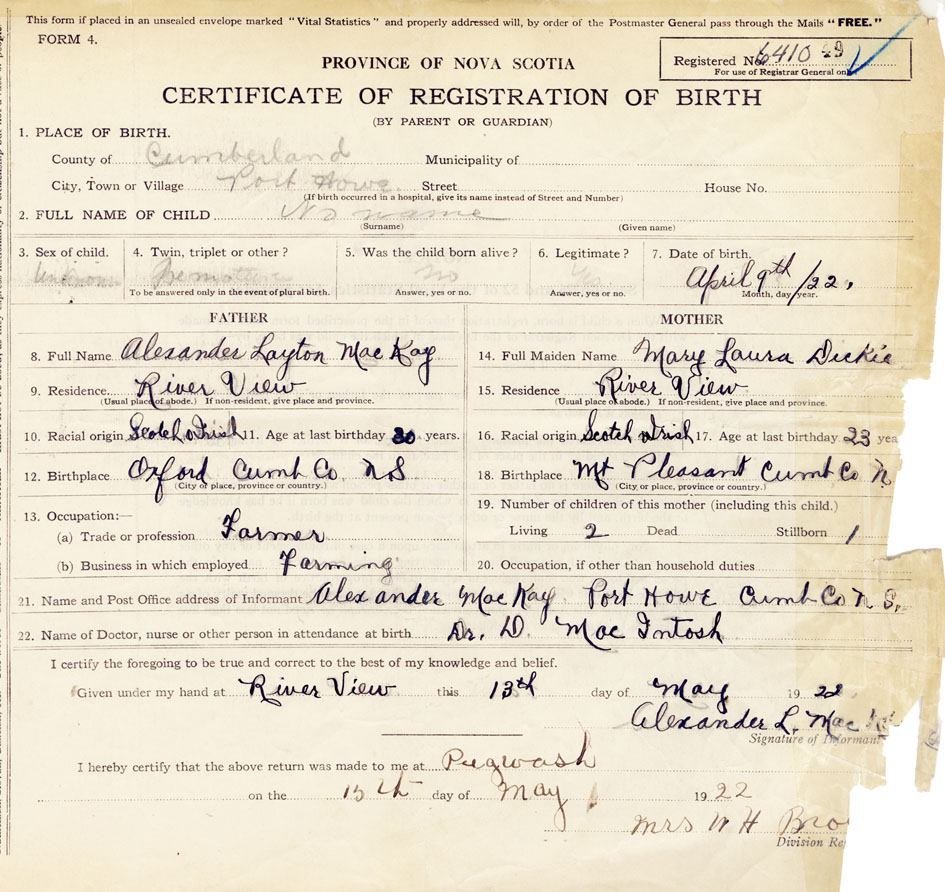 This form if placed in an unsealed envelope marked "Vital Statistics" and properly addressed will, by order of the Postmaster General pass through the Mails "FREE."
FORM 4.
Registered No. 6410 49
For use of Registrar General only
PROVINCE OF NOVA SCOTIA
CERTIFICATE OF REGISTRATION OF BIRTH
(BY PARENT OR GUARDIAN)
1. PLACE OF BIRTH.
County of Cumberland Municipality of
City, Town or Village Port Howe. Street House No.
(If birth occurred in a hospital, give its name instead of Street and Number)
2. FULL NAME OF CHILD No name
(Surname) (Given name)
3. Sex of child. 4. Twin, triplet or other? 5. Was the child born alive? 6. Legitimate? 7. Date of birth.
Unknown Premature No Yes April 9th/22.
To be answered only in the event of plural birth. Answer, yes or no. Answer, yes or no. Month, day, year.
FATHER MOTHER
8. Full Name Alexander Layton MacKay 14. Full Maiden Name Mary Laura Dickie
9. Residence River View 15. Residence River View
(Usual place of abode.) If non-resident, give place and province. (Usual place of abode.) If non-resident, give place and province.
10. Racial origin Scotch & Irish 11. Age at last birthday 30 years. 16. Racial origin Scotch & Irish 17. Age at last birthday 23 yea
12. Birthplace Oxford Cumb Co. N S 18. Birthplace Mt Pleasant Cumb Co N.
(City or place, province or country.) (City or place, province or country.)
13. Occupation:— 19. Number of children of this mother (including this child.)
(a) Trade or profession Farmer Living 2 Dead Stillborn 1
(b) Business in which employed Farming 20. Occupation, if other than household duties
21. Name and Post Office address of Informant Alexander MacKay Port Howe Cumb Co N S.
22. Name of Doctor, nurse or other person in attendance at birth Dr. D. MacIntosh
I certify the foregoing to be true and correct to the best of my knowledge and belief.
Given under my hand at River View this 13th day of May 1922.
Alexander L. Mac
Signature of Informant
I hereby certify that the above return was made to me at Pugwash
on the 15th day of May 1922
Mrs W H Bro
Division Re